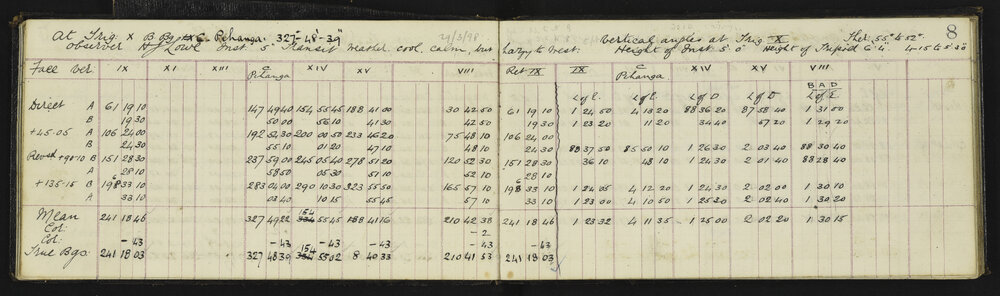 At Trig X B Bgs to C Pehanga. 327°-48'-39" 24/3/98 Vertical angles at Trig IX Ther: 55° to 52° 8
observer HJ Lowe Inst 5" Transit Weather. cool, calm, but hazy to West. Height of Inst 5' 0" Height of Tripod 6'4" 4-15 to 5-30
Face Ver. IX X XI XII XIII C Pehanga XIV XV VIII Ret IX IX C Pehanga XIV XV VIII
L of E. L of E. L of D L of D BAD L of E.
Direct A 61 19 10 147 49 40 154 55 45 188 41 00 30 42 50 61 19 10 1 24 50 4 10 20 88 36 20 87 58 40 1 31 00
B 19 30 50 00 56 10 41 30 42 50 19 30 1 23 20 11 20 34 40 57 20 1 29 20
+45.05 A 106 24 00 192 54 30 200 00 50 233 46 20 75 48 10 106 24 00
B 24 30 55 10 01 20 47 10 48 10 24 30 88 37 50 85 50 10 1 26 30 2 03 40 88 30 40
Revsd +90.10 B 151 28 30 237 59 00 245 05 40 278 51 20 120 52 30 151 28 30 36 10 48 10 1 24 30 2 01 40 88 28 40
A 28 10 58 50 05 30 51 10 52 10 28 10
+135.15 B 196 33 10 283 04 00 290 10 30 323 55 50 165 57 10 196 33 10 1 24 05 4 12 20 1 24 30 2 02 00 1 30 10
A 33 10 03 40 10 15 55 45 57 10 33 10 1 23 00 4 10 50 1 25 30 2 02 40 1 30 20
Mean 241 18 46 327 49 22 154 55 45 188 41 16 210 42 38 241 18 46 1 23 32 4 11 35 1 25 00 2 02 20 1 30 15
Col: - 2
Col: - 43 - 43 - 43 - 43 - 43 - 43
True Bgs: 241 18 03 327 48 39 154 55 02 8 40 33 210 41 53 241 18 03